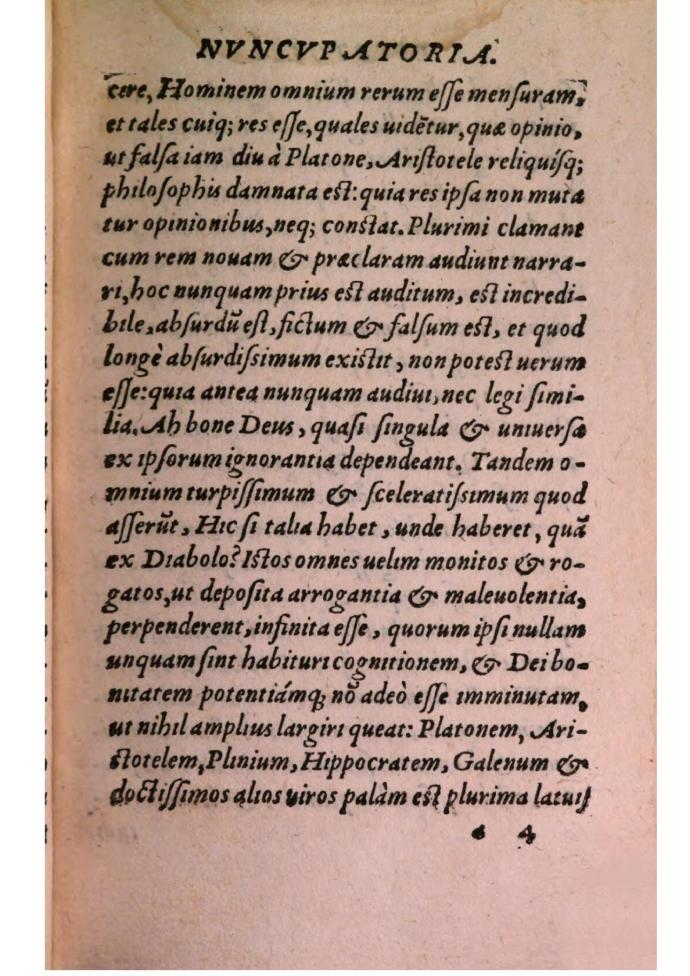 NVNCVPATORIA.
cere, Hominem omnium rerum eſſe menſuram,
et tales cuiq; res eſſe, quales uidẽtur, quæ opinio,
ut falſa iam diu à Platone, Ariſtotele reliquíſq;
philoſophis damnata eſt: quia res ipſa non muta
tur opinionibus, neq; conſtat. Plurimi clamant
cum rem nouam & præclaram audiunt narra-
ri, hoc nunquam prius eſt auditum, eſt incredi-
bile, abſurdũ eſt, fictum & falſum eſt, et quod
longè abſurdiſsimum exiſtit, non poteſt uerum
eſſe: quia antea nunquam audiui, nec legi ſimi-
lia. Ah bone Deus, quaſi ſingula & uniuerſa
ex ipſorum ignorantia dependeant. Tandem o-
mnium turpiſſimum & ſceleratiſsimum quod
aſſerũt, Hic ſi talia habet, unde haberet, quã
ex Diabolo? Iſtos omnes uelim monitos & ro-
gatos, ut depoſita arrogantia & maleuolentia,
perpenderent, infinita eſſe, quorum ipſi nullam
unquam ſint habituri cognitionem, & Dei bo-
nitatem potentiámq; nõ adeò eſſe imminutam,
ut nihil amplius largiri queat: Platonem, Ari-
ſtotelem, Plinium, Hippocratem, Galenum &
doctiſſimos alios uiros palàm eſt plurima latuiſ
4